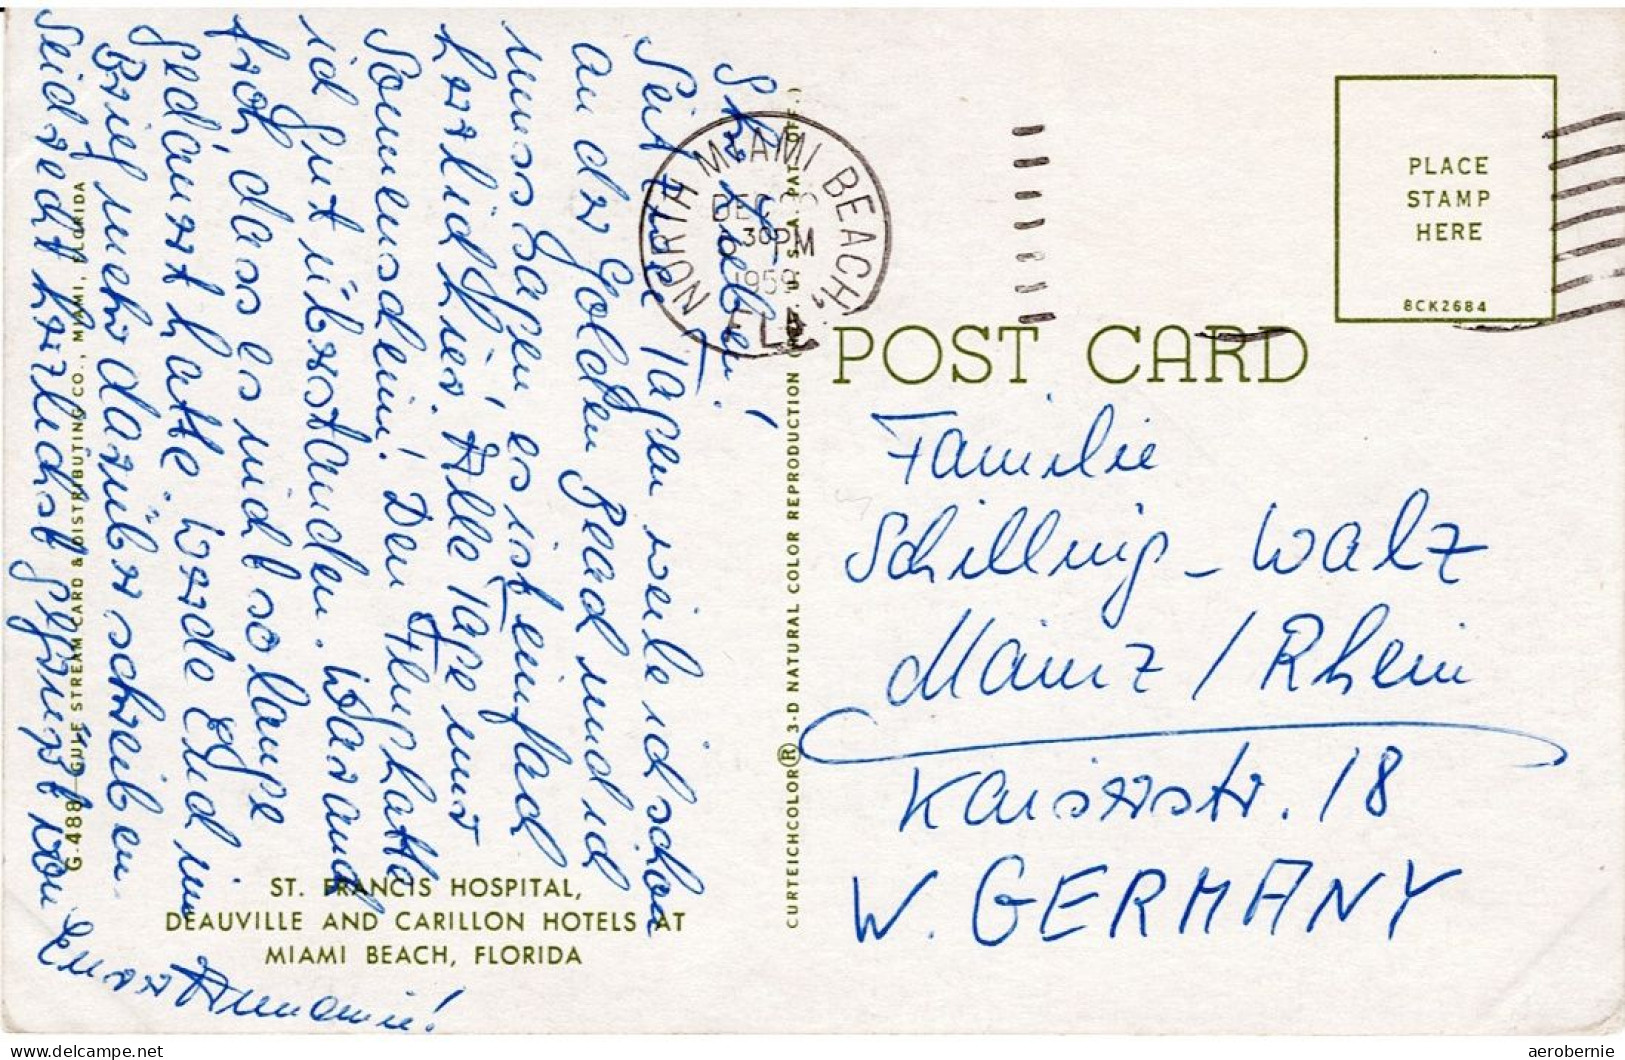 Ihr Lieben!
Seit 2 Tagen weile ich schon
an der Golden Beach und ich
muss sagen, es ist einfach
herrlich hier. Alle Tage nur
Sonnenschein! Den Flug hatte
ich gut überstanden. War auch
froh, dass es nicht so lange
gedauert hatte. Werde Euch im
Brief mehr darüber schreiben.
Seid recht herzlichst gegrüßt von
Eurer Annemie!
G-488—GULF STREAM CARD & DISTRIBUTING CO., MIAMI, FLORIDA
ST. FRANCIS HOSPITAL,
DEAUVILLE AND CARILLON HOTELS AT
MIAMI BEACH, FLORIDA
CURTEICHCOLOR® 3-D NATURAL COLOR REPRODUCTION U.S.A. PAT. OFF.)
NORTH MIAMI BEACH,
DEC
30 PM
1959
FLA.
PLACE
STAMP
HERE
8CK2684
POST CARD
Familie
Schilling-Walz
Mainz / Rhein
Kaiserstr. 18
W. GERMANY
aerobernie